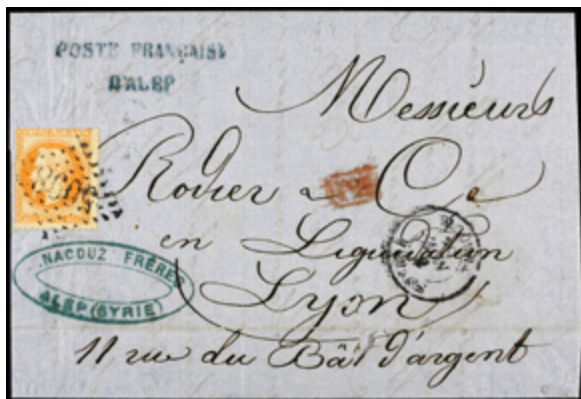 POSTE FRANÇAISE
D'ALEP
Messieurs
Rodier & Cie
en Liquidation
Lyon
11 rue du Bât d'argent
NACOUZ FRÈRES
ALEP (SYRIE)